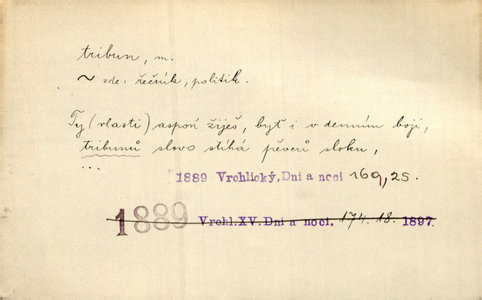 tribun, m.
~ zde. řečník, politik.
Ty (vlasti) aspoň žiješ, byť i v denním boji,
tribunů slovo stíhá pěvců sloku,
...
1889 Vrchlický, Dni a noci 169, 25.
1889 Vrchl. XV. Dni a noci. 174. 18. 1897.